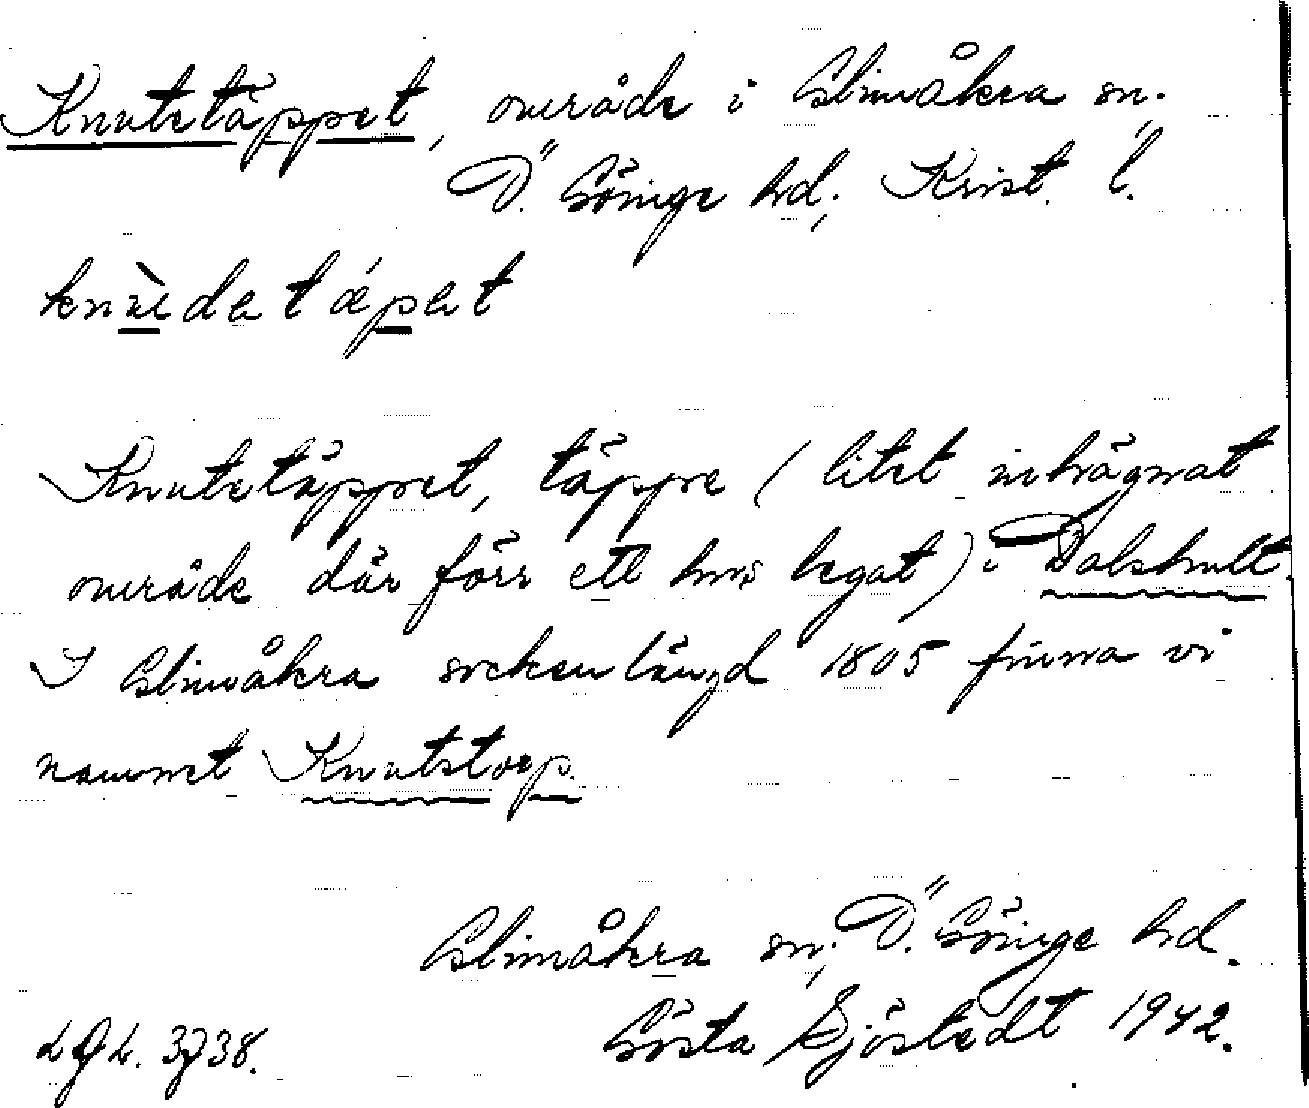 Knutetäppet, område i Glimåkra sn.
Ö. Göinge hd, Krist. l.
knùdetǽpet
Knutetäppet, täppe (litet inhägnat
område där förr ett hus legat) i Dalshult.
I Glimåkra sockenlängd 1805 finna vi
namnet Knutstorp.
Glimåkra sn, Ö. Göinge hd.
Gösta Sjöstedt 1942.
LGL. 3738.